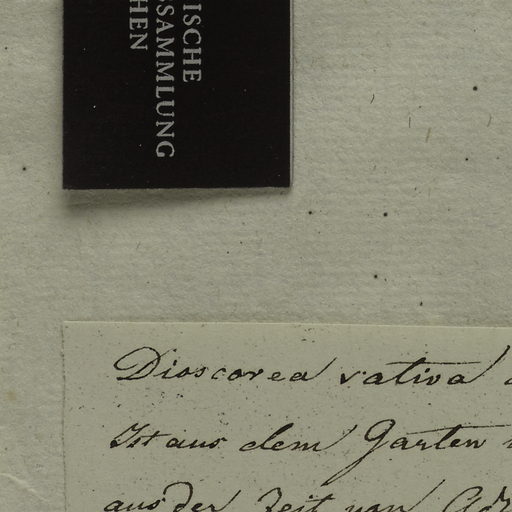 ISCHE
SSAMMLUNG
HEN
Dioscorea sativa
Ist aus dem Garten
aus der Zeit von